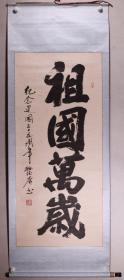 祖國萬歲
紀念建國三十五周年